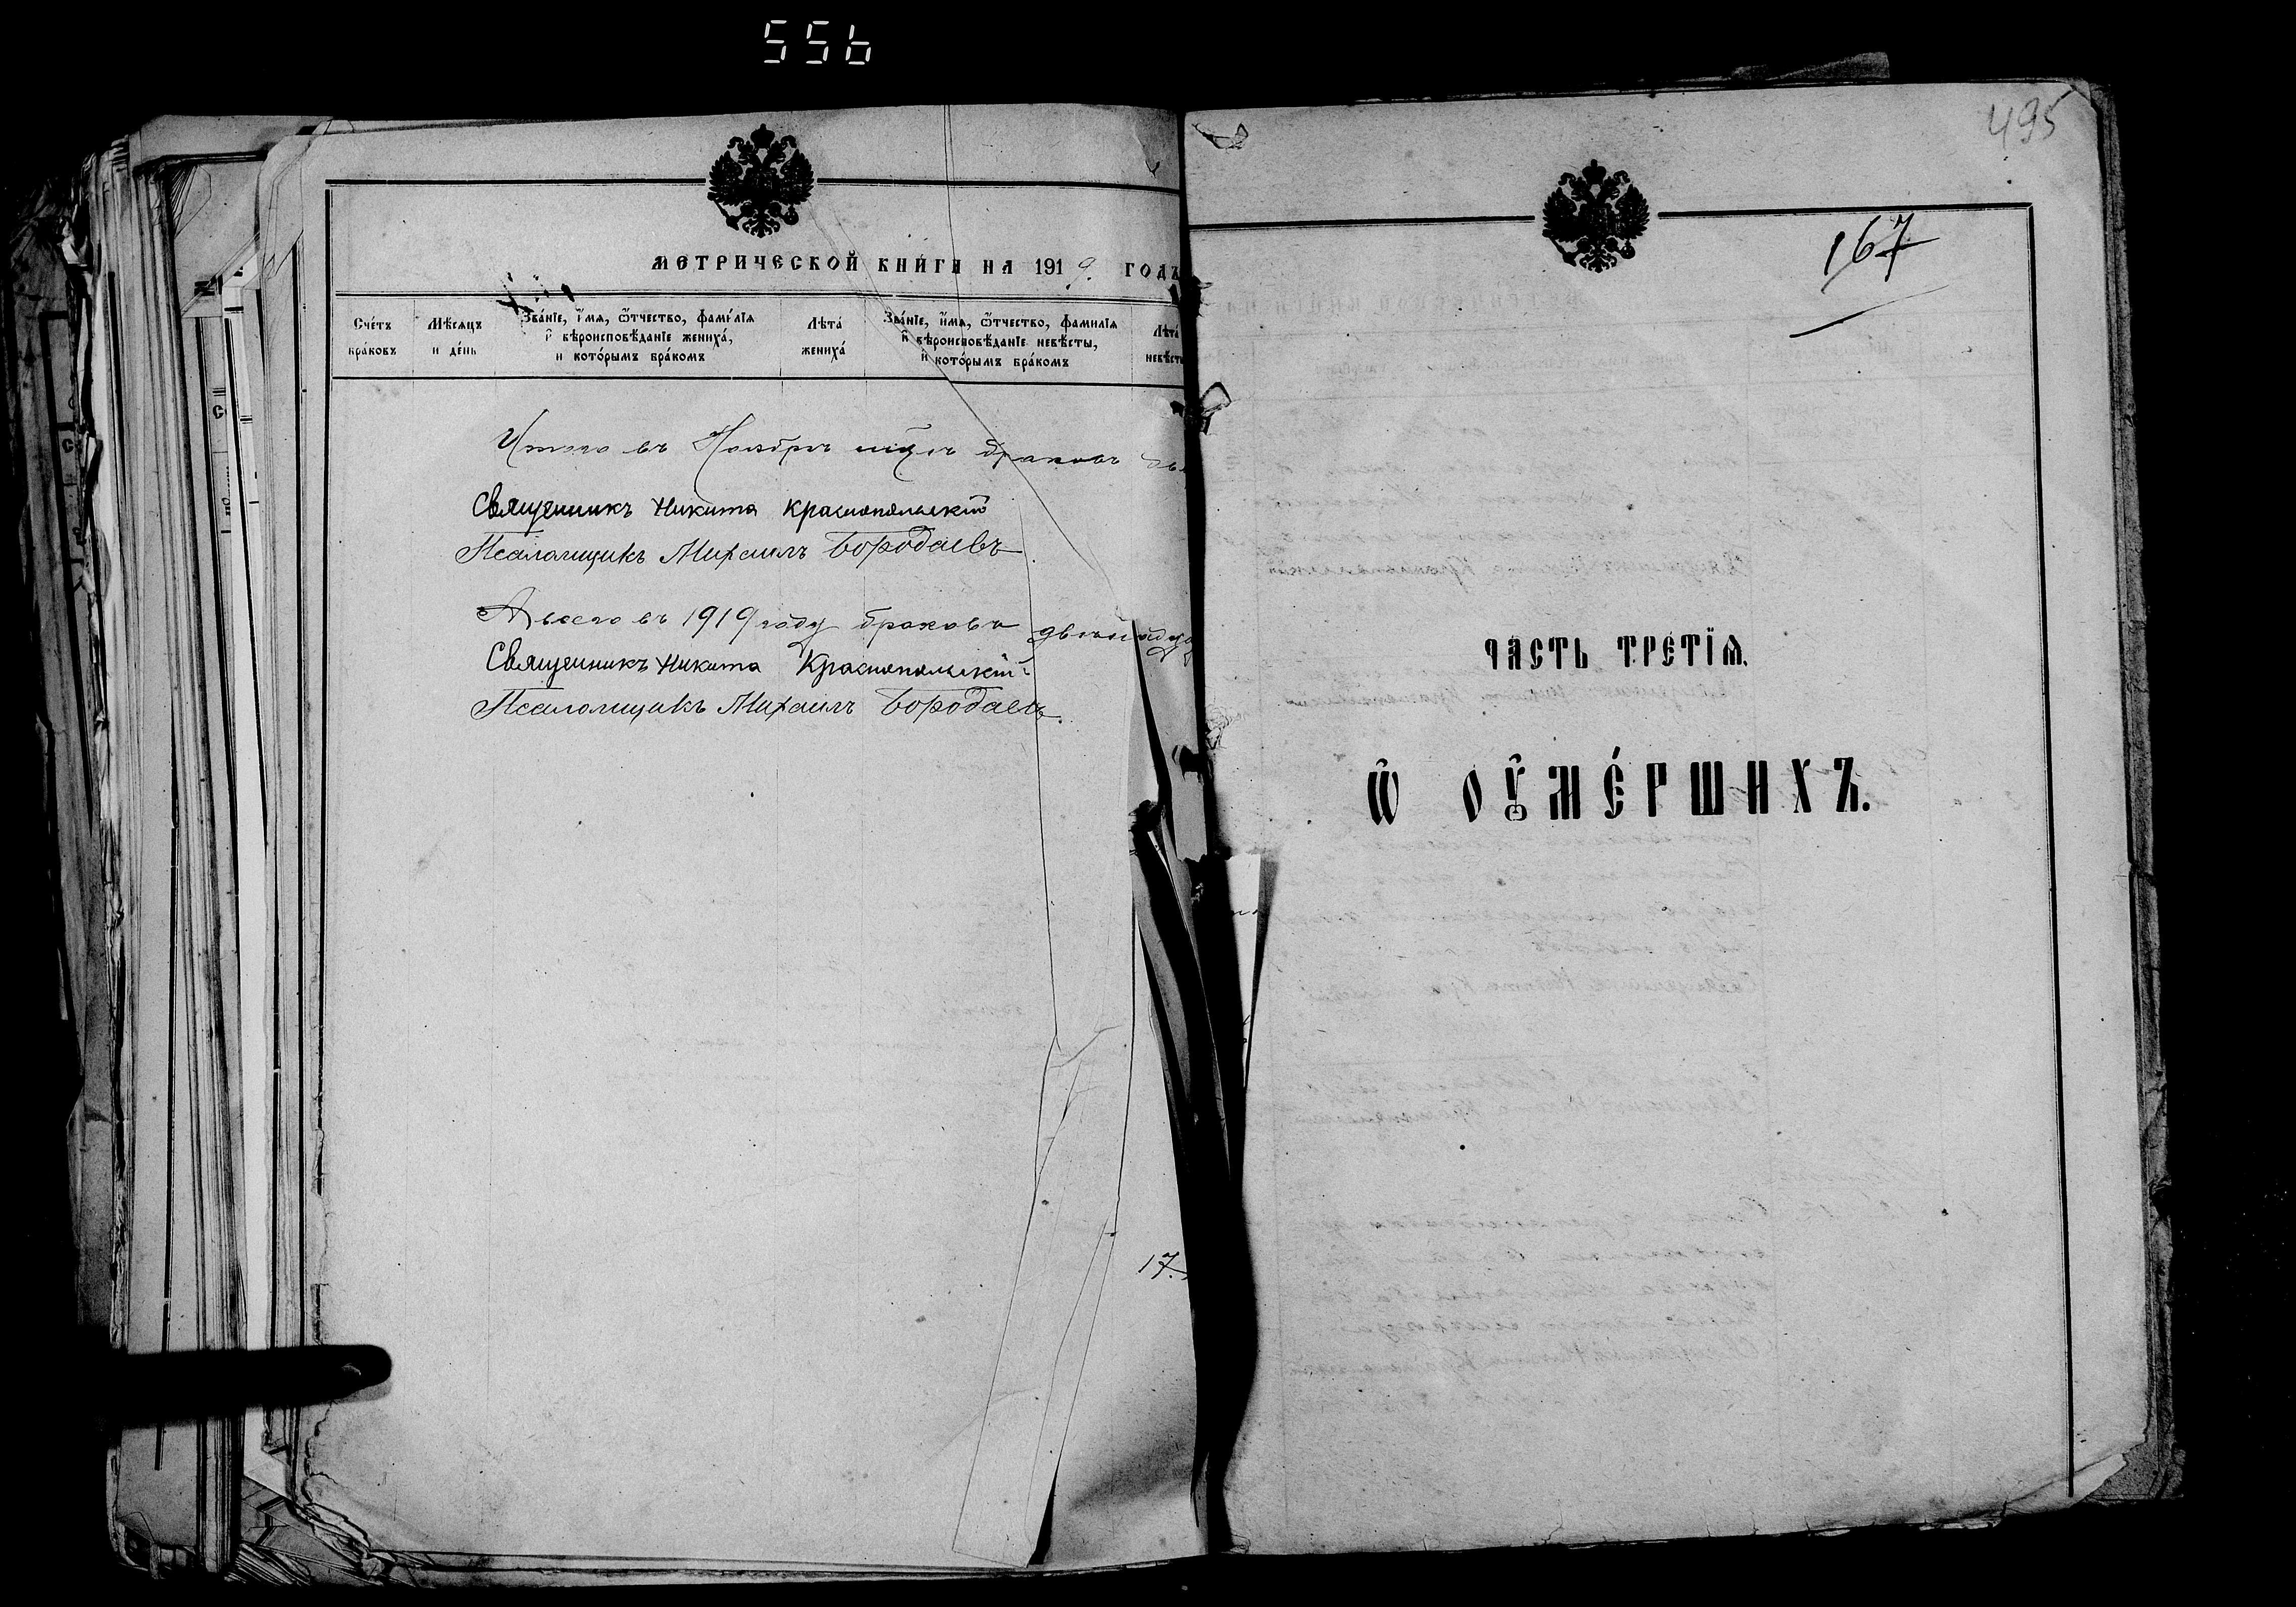 556
МЕТРИЧЕСКОЙ КНИГИ НА 1919. ГОДЪ
Сче́тъ бра́ковъ
Мѣ́сяцъ и де́нь
Зва́нїе, и҆́мѧ, ѻ҆́тчество, фами́лїѧ и҆ вѣроисповѣ́данїе жениха́, и кото́рымъ бра́комъ
Лѣта́ жениха́
Зва́нїе, и҆́мѧ, ѻ҆́тчество, фамилїѧ и҆ вѣроисповѣ́данїе невѣ́сты, и҆ кото́рымъ бра́комъ
Лѣта́ невѣст
Итого въ Ноябрѣ мцѣ браковъ
Священникъ Никита Краснопольскій
Псаломщикъ Михаилъ Бородаевъ.
А всего въ 1919 году браковъ двѣнадца
Священникъ Никита Краснопольскій
Псаломщикъ Михаилъ Бородаевъ.
17.
495
167
ЧАСТЬ ТРЕТЇѦ.
Ѽ ОУ҆МЕ́РШИХЪ.